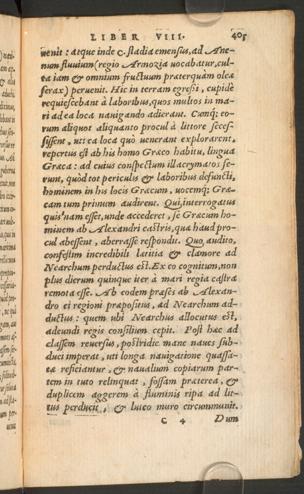 LIBER VIII. 405
uenit: atque inde C. stadia emensus, ad Ane-
num fluuium (regio Armozia uocabatur, cul-
ta iam & omnium fructuum praterquàm olea
ferax) peruenit. Hic in terram egreßi, cupidè
requiescebant à laboribus, quos multos in ma-
ri ad ea loca nauigando adierant. Cumq; eo-
rum aliquot aliquanto procul à littore secef-
sissent, uti ea loca quò uenerant explorarent,
repertus est ab his homo Græco habitu, lingua
Græca: ad cuius conspectum illacrymatos fe-
runt, quòd tot periculis & laboribus defuncti,
hominem in his locis Græcum, uocemq; Græ-
cam tum primum audirent. Qui interrogatus
quisnam esset, unde accederet, se Græcum ho-
minem ab Alexandri castris, qua haud pro-
cul abessent, aberrasse respondit. Quo audito,
confestim incredibili lætitia & clamore ad
Nearchum perductus est. Ex eo cognitum, non
plus dierum quinque iter à mari regia castra
remota esse. Ab eodem præses ab Alexan-
dro ei regioni præpositus, ad Nearchum ad-
ductus: quem ubi Nearchus allocutus est,
adeundi regis consilium cepit. Post hæc ad
classem reuersus, postridie mane naues sub-
duci imperat, uti longa nauigatione quassa-
ta reficiantur, & naualium copiarum par-
tem in tuto relinquat, fossam præterea, &
duplicem aggerem à fluminis ripa ad lit-
tus perducit, & luteo muro circummunit.
C 4 Dum